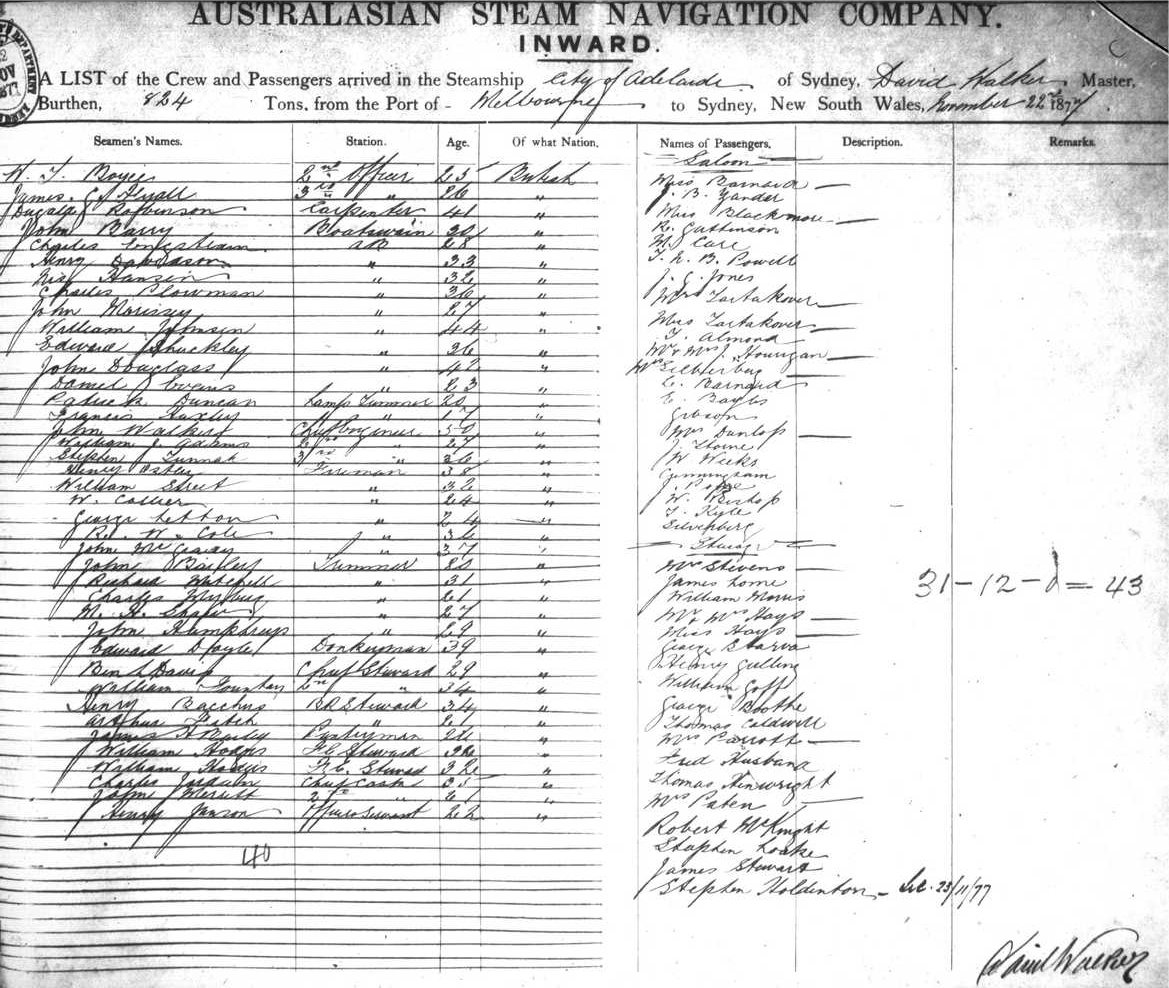 AUSTRALASIAN STEAM NAVIGATION COMPANY.
INWARD.
A LIST of the Crew and Passengers arrived in the Steamship City of Adelaide of Sydney, David Walker Master,
Burthen, 824 Tons, from the Port of Melbourne to Sydney, New South Wales, November 22nd 1877
Seamen's Names. Station. Age. Of what Nation. Names of Passengers. Description. Remarks.
Saloon
2nd Officer 25 British
James 3rd " 26 "
Dugald Robinson Carpenter 41 "
John Barry Boatswain 30 "
Charles AB 28 "
Henry Davidson " 33 "
Hansen " 32 "
Charles Plowman " 36 "
John Morissey " 27 "
William Johnson " 44 "
Edward Shuckley " 36 "
John Douglass " 42 "
Daniel Evans " 23 "
Patrick Duncan Lamp Trimmer 20 "
Francis Huxley " 17 "
John Walker Chief Engineer 50 "
William J. Adams 2nd " 27 "
Stephen 3rd " 36 "
Henry Fireman 38 "
William Street " 32 "
W. Collier " 24 "
George " 24 "
W. Cole " 36 "
John McGeavey " 37 "
John Bailey Trimmer 20 "
Richard Mitchell " 31 "
Charles " 21 "
M. H. Shaw " 27 "
John Humphreys " 29 "
Edward Doyle Donkeyman 39 "
Ben L Davis Chief Steward 29 "
William 2nd " 34 "
Henry Bacchus B.R Steward 34 "
Arthur " 21 "
James H Bailey Pantryman "
William Hodges F.C. Steward "
William Steward 32 "
Charles Jordain Chief Cook 35 "
John Merritt 2nd " "
Henry Janson Officers Servant 22 "
40
Miss Barnard
J. B. Yander
Miss Blackmore
R. Guttinson
M. Care
T. N. B. Powell
J. G. Jones
Mrs Tartakover
Miss Tartakover
T. Almond
Mr & Mrs J. Hourigan
Silberberg
E. Barnard
E. Bayles
Gibson
Mrs Dunlop
J. Thorne
W Weeks
Cunningham
J. Pope
W. Bishop
T. Kyle
Silverberg
Steerage
Mrs Stevens
James Lorne
William Morris
Mr & Mrs Hays
Miss Hays
George Starva
Henry Gulling
William Goff
George Boothe
Thomas Caldwell
Mrs Parrott
Fred Husband
Thomas Ainwright
Mrs Paten
Robert McKnight
Stephen Loake
James Stewart
Stephen Holdinton 23/11/77
31-12-d = 43
David Walker